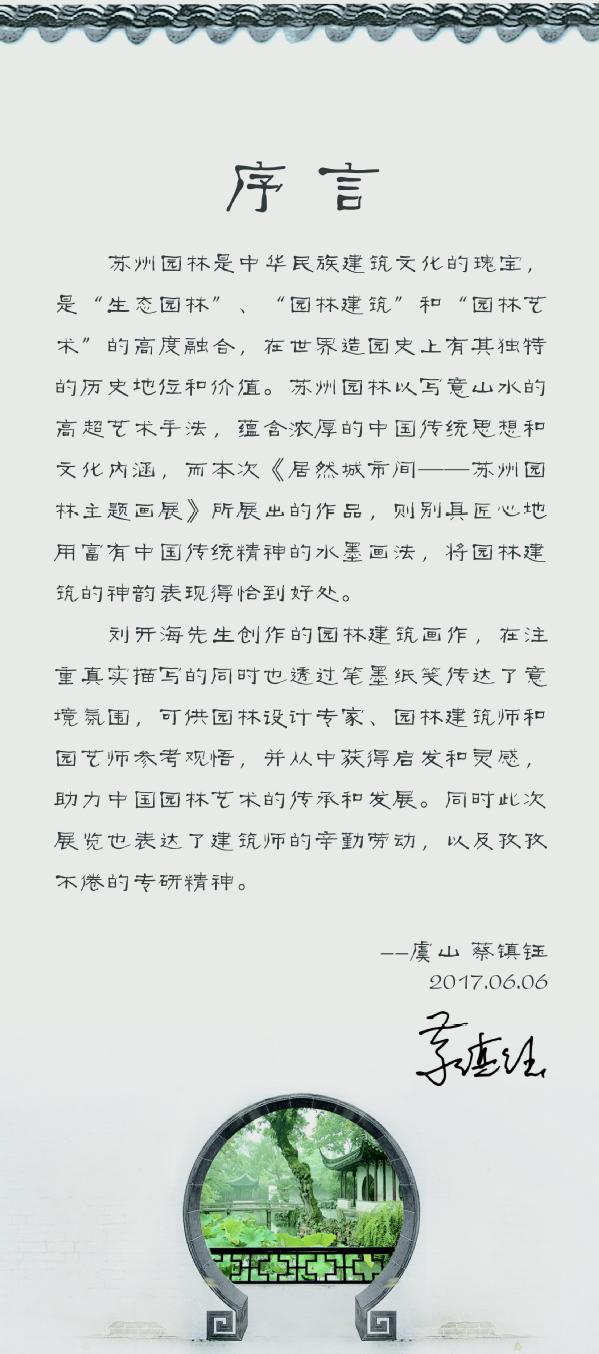 序言
苏州园林是中华民族建筑文化的瑰宝，
是“生态园林”、“园林建筑”和“园林艺
术”的高度融合，在世界造园史上有其独特
的历史地位和价值。苏州园林以写意山水的
高超艺术手法，蕴含浓厚的中国传统思想和
文化内涵，而本次《居然城市间——苏州园
林主题画展》所展出的作品，则别具匠心地
用富有中国传统精神的水墨画法，将园林建
筑的神韵表现得恰到好处。
刘开海先生创作的园林建筑画作，在注
重真实描写的同时也透过笔墨纸笺传达了意
境氛围，可供园林设计专家、园林建筑师和
园艺师参考观悟，并从中获得启发和灵感，
助力中国园林艺术的传承和发展。同时此次
展览也表达了建筑师的辛勤劳动，以及孜孜
不倦的专研精神。
--虞山 蔡镇钰
2017.06.06
蔡镇钰